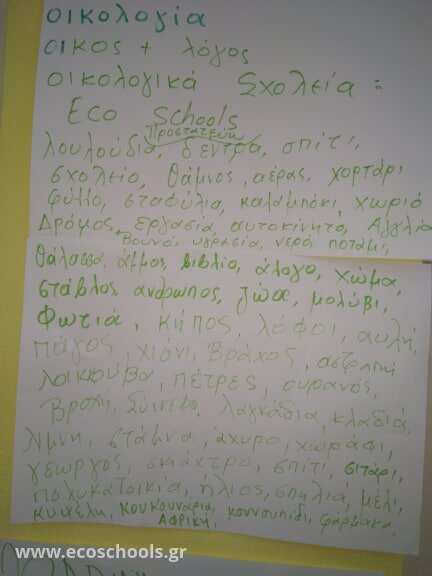 οικολογία
οικος + λόγος
οικολογικά Σχολεία:
Eco Schools
Προστατεύω
λουλούδια, δεντρα, σπίτι,
σχολείο, θάμνος, αέρας, χορτάρι
φύλλο, σταφύλια, καλαμπόκι, χωριό
Δρόμος, εργασία, αυτοκίνητο, Αγγλία
Βουνό, υγρασία, νερό, ποτάμι,
θάλασσα, άμμος, βιβλίο, άλογο, χώμα,
στάβλος, ανθρωπος, ζώα, μολύβι,
Φωτιά, κήπος, λόφοι, αυλή,
πάγος, χιόνι, Βράχος, αστραπή
λακκούβα, πέτρες, ουρανός,
Βροχη, Σύννεφο, λαγκάδια, κλαδιά,
λιμνη, στάμνα, άχυρο, χωράφι,
γεωργος, σκιάχτρο, σπίτι, σιτάρι,
πολυκατοικία, ήλιος, σπηλιά, μέλι,
κυψέλη, κουκουνάρια, κουνουπίδι, φάρμακα,
ΑΦΡΙΚή,
www.ecoschools.gr